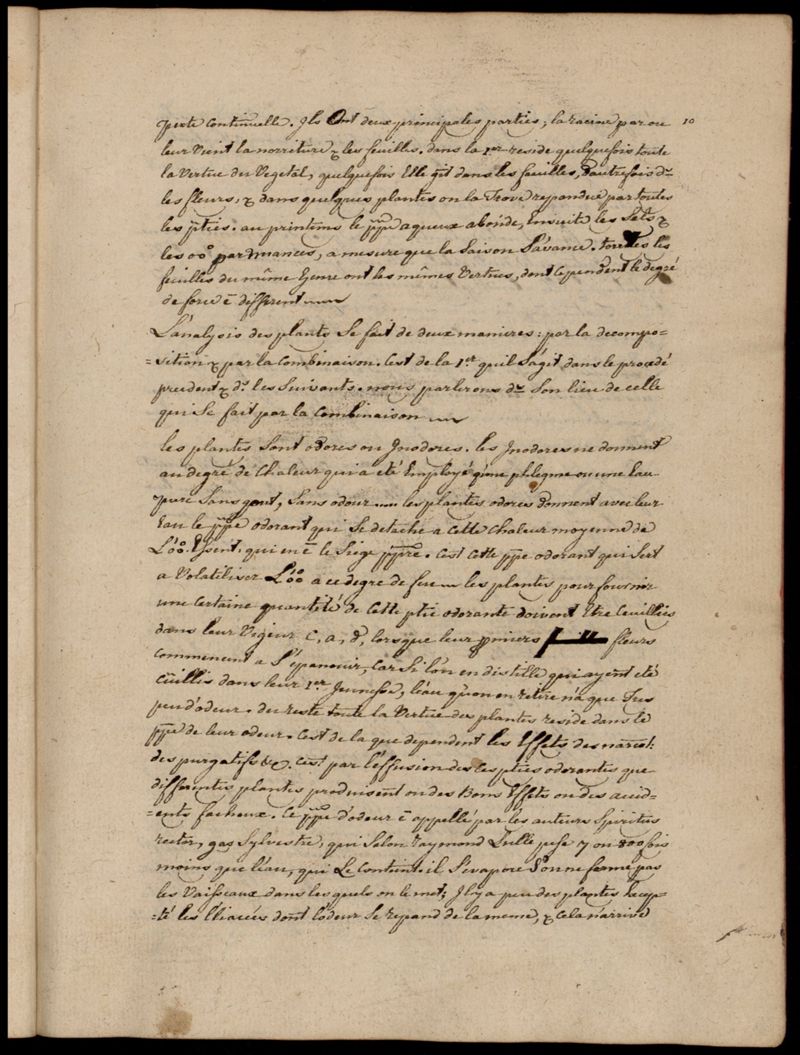 perte continuelle. Ils Ont deux principales parties; la racine par ou 10
leur Vient la norriture & les feuilles. dans la 1.er reside quelquefois toute
la Vertue du Vegetal, quelquefois Elle git dans les feuilles, d'autrefois ds
les fleurs, & dans quelques plantes on la Trove rependue par toutes
les pties. au printems le ppe aqueux abonde, Ensuite les Sels &
les oo° par nuances, a mesure que la Saison S'avance. toutes les
feuilles du même Genre ont les mêmes Vertues, dont cependent le degré
de force ē different
L'analysis des plants Se fait de deux manieres: par la decompo-
=sition & par la Combinaison. C'est de la 1.er qu'il S'agit dans le procedé
precedent & ds les Suivants. nous parlerons ds Son lieu de celle
qui Se fait par la Combinaison
les plantes Sont odores ou Inodores. les Inodores ne donnent
au degré de Chaleur qui a eté Employé qu'une phlegme ou une Eau
pure Sans gout, Sans odour les plantes odores donnent avec leur
Eau le ppe odorant qui Se detache a Cette Chaleur moyenne de
L'oo° Essent. qui en ē le Siege ppre. C'est cette ppe odorant qui Sert
a Volatiliser L'oo° a ce degre de feu les plantes pour fournir
une Certaine quantité de Cette ptie odorante doivent Etre Ceuillies
dans leur Vigeur C, a, d, lorsque leur pmiers fleurs
Commencent a S'epanouir, Car Si l'on en distille qui ayent eté
Cüillis dans leur 1.er Jeunesse, l'eau qu'on en retire n'a que Tres
peu d'odeur. du reste toute la Vertue des plantes reside dans le
ppe de leur odeur. C'est de la que dependent les Effets des narcot:
des purgatifs &c. C'est par l'effusion des ces pties odorantes que
differentes plantes produisent ou des Bons Effets ou des accid-
=ents facheux. Ce ppe d'odeur ē appellé par les auteurs Spiritus
rector, gas Sylvestre, qui Selon Raymond Lulle pese 7 ou 800 fois
moins que l'eau, qui Le Contient. il S'evapore Si on ne ferme pas
les Vaisseaux dans les quels on le met; Il y a peu des plantes Excep-
=té les liliacées dont l'odeur Se repand de la meme, & cela n'arrive